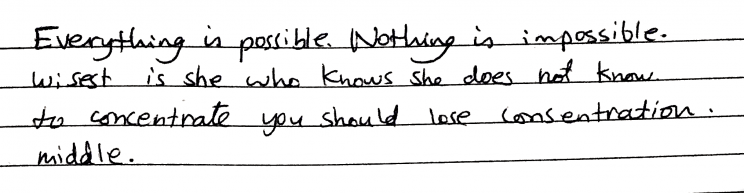 Everything is possible. Nothing is impossible.
Wisest is she who knows she does not know
to concentrate you should lose consentration.
middle.